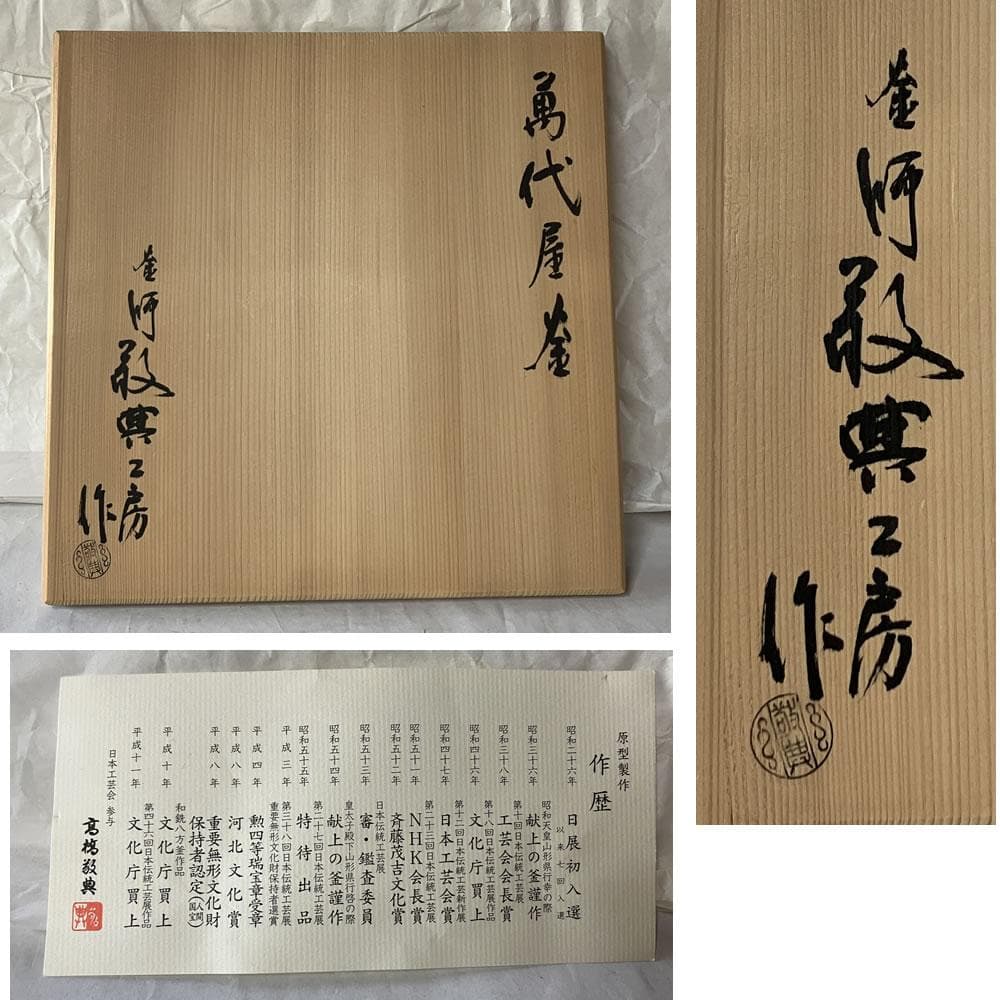 萬代屋釜
釜師
敬典工房
作
敬典
釜師
敬典工房
作
敬典
原型製作
作歴
昭和二十六年 日展初入選
以来七回入選
昭和天皇山形県行幸の際
昭和三十六年 献上の釜謹作
第十回日本伝統工芸展
昭和三十八年 工芸会会長賞
第十八回日本伝統工芸展作品
昭和四十六年 文化庁買上
第十二回日本伝統工芸新作展
昭和四十七年 日本工芸会賞
第二十三回日本伝統工芸展
昭和五十一年 NHK会長賞
昭和五十二年 斉藤茂吉文化賞
日本伝統工芸展
昭和五十三年 審・鑑査委員
皇太子殿下山形県行啓の際
昭和五十四年 献上の釜謹作
第二十七回日本伝統工芸展
昭和五十五年 特待出品
第三十八回日本伝統工芸展
平成三年 重要無形文化財保持者選賞
平成四年 勲四等瑞宝章受章
平成八年 河北文化賞
平成八年 重要無形文化財
保持者認定(人間国宝)
和銑八方釜作品
平成十年 文化庁買上
第四十六回日本伝統工芸展作品
平成十一年 文化庁買上
日本工芸会 参与
高橋敬典